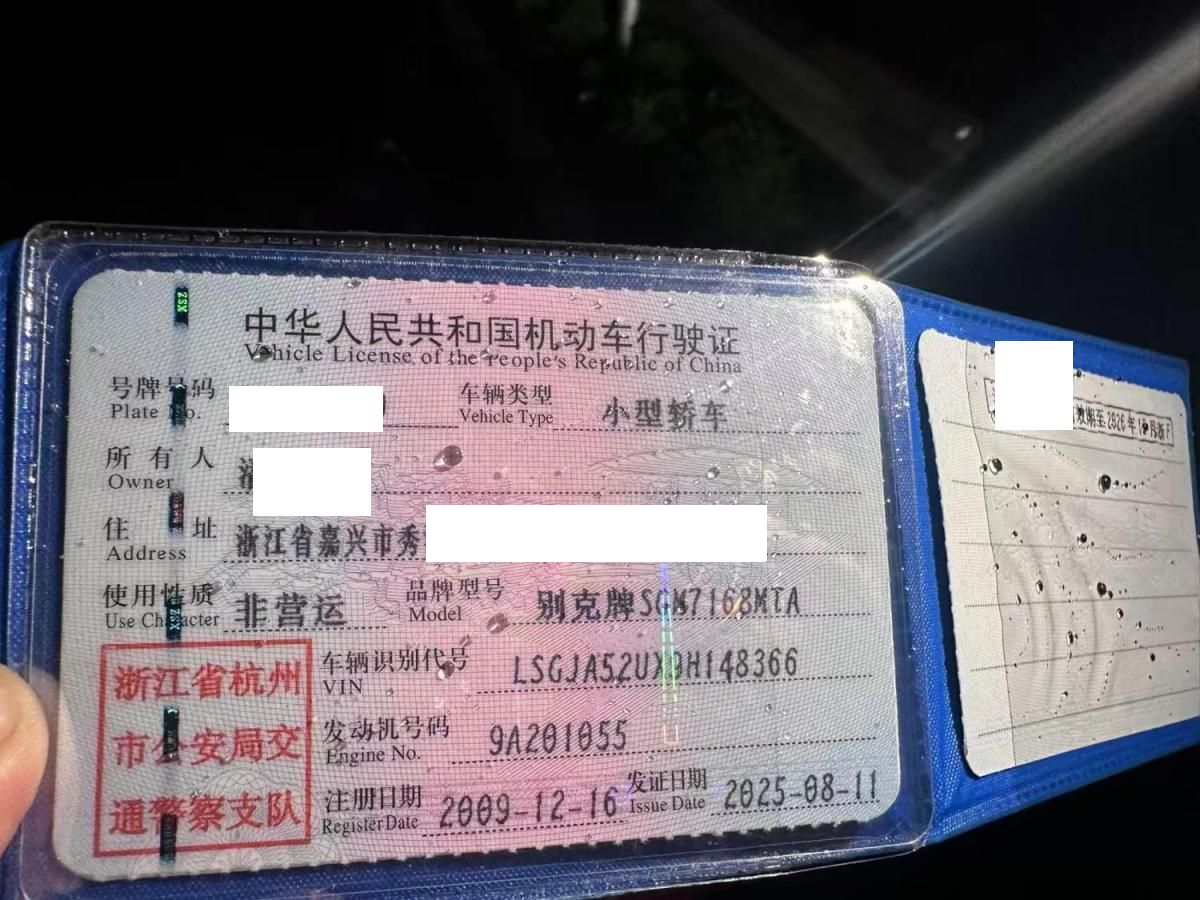 中华人民共和国机动车行驶证
Vehicle License of the People's Republic of China
号牌号码
Plate No.
车辆类型 小型轿车
Vehicle Type
所有人
Owner
住址 浙江省嘉兴市秀
Address
使用性质 非营运
Use Character
品牌型号 别克牌SGM7168MTA
Model
浙江省杭州
市公安局交
通警察支队
车辆识别代号 LSGJA52UX9H148366
VIN
发动机号码 9A201055
Engine No.
注册日期 2009-12-16
Register Date
发证日期 2025-08-11
Issue Date
效期至2026年